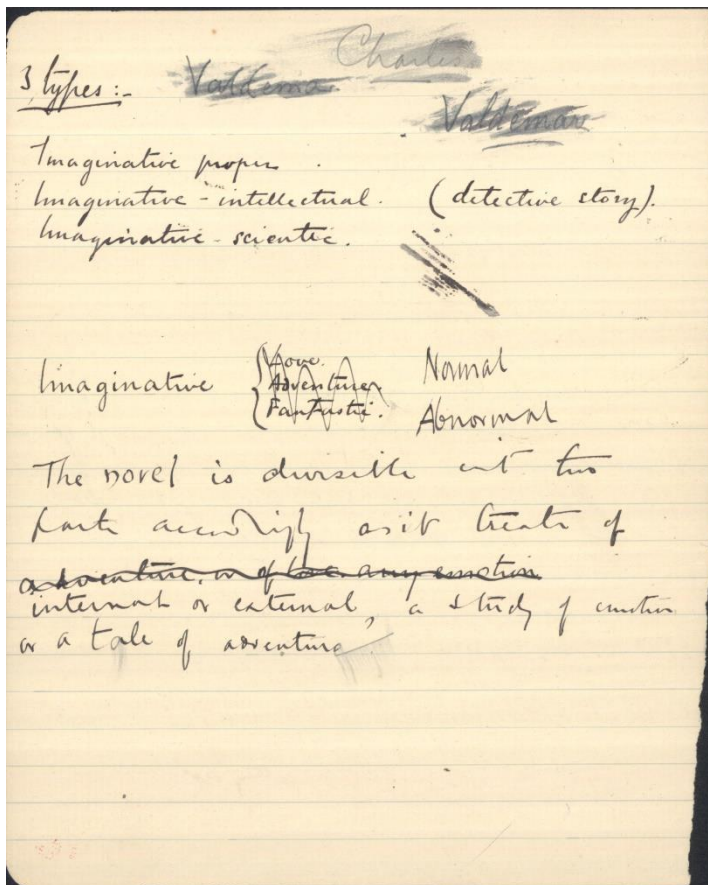 Charles
3 types :- Valdemar
Valdemar
Imaginative proper.
Imaginative - intellectual. (detective story).
Imaginative - scientic.
Imaginative { Love. Normal
Adventure.
Fantastic. Abnormal
The novel is divisible int two
parts accordigly as it treats of
adventure, or of love any emotion
internal or external, a study of emotion
or a tale of adventure.